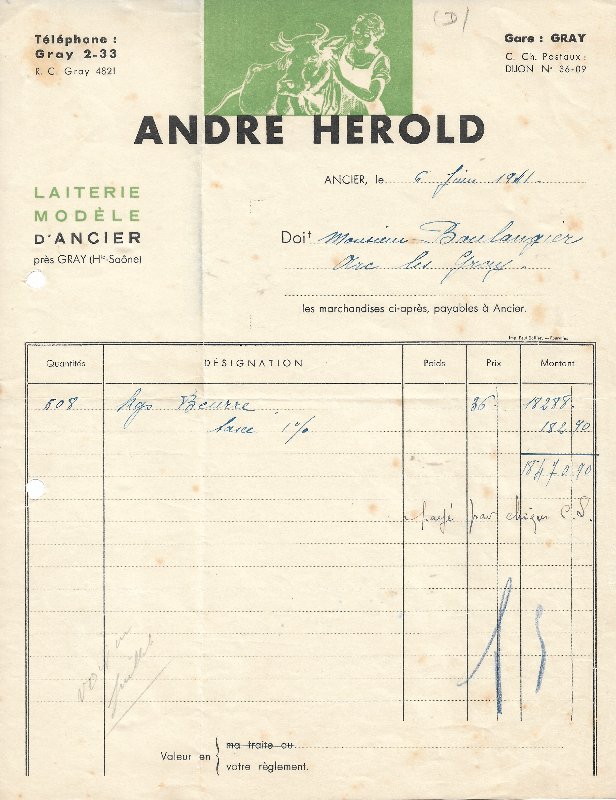 (D)
Téléphone :
Gray 2-33
R. C. Gray 4821
Gare : GRAY
C. Ch. Postaux :
DIJON N° 36-09
ANDRE HEROLD
ANCIER, le 6 Juin 1941.
LAITERIE
MODÈLE
D'ANCIER
près GRAY (Hte-Saône)
Doit Monsieur Boulangier
Arc les Gray.
les marchandises ci-après, payables à Ancier.
Quantités DÉSIGNATION Poids Prix Montant
508 Kgs Beurre 36 18288
taxe 1% 182 90
18470 90
payé par chèque C.S.
15
Valeur en { ma traite au
votre règlement.